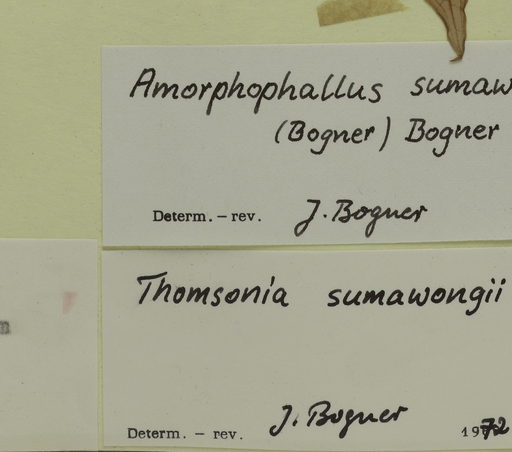 Amorphophallus sumaw
(Bogner) Bogner
Determ. – rev. J. Bogner
Thomsonia sumawongii
Determ. – rev. J. Bogner 1972